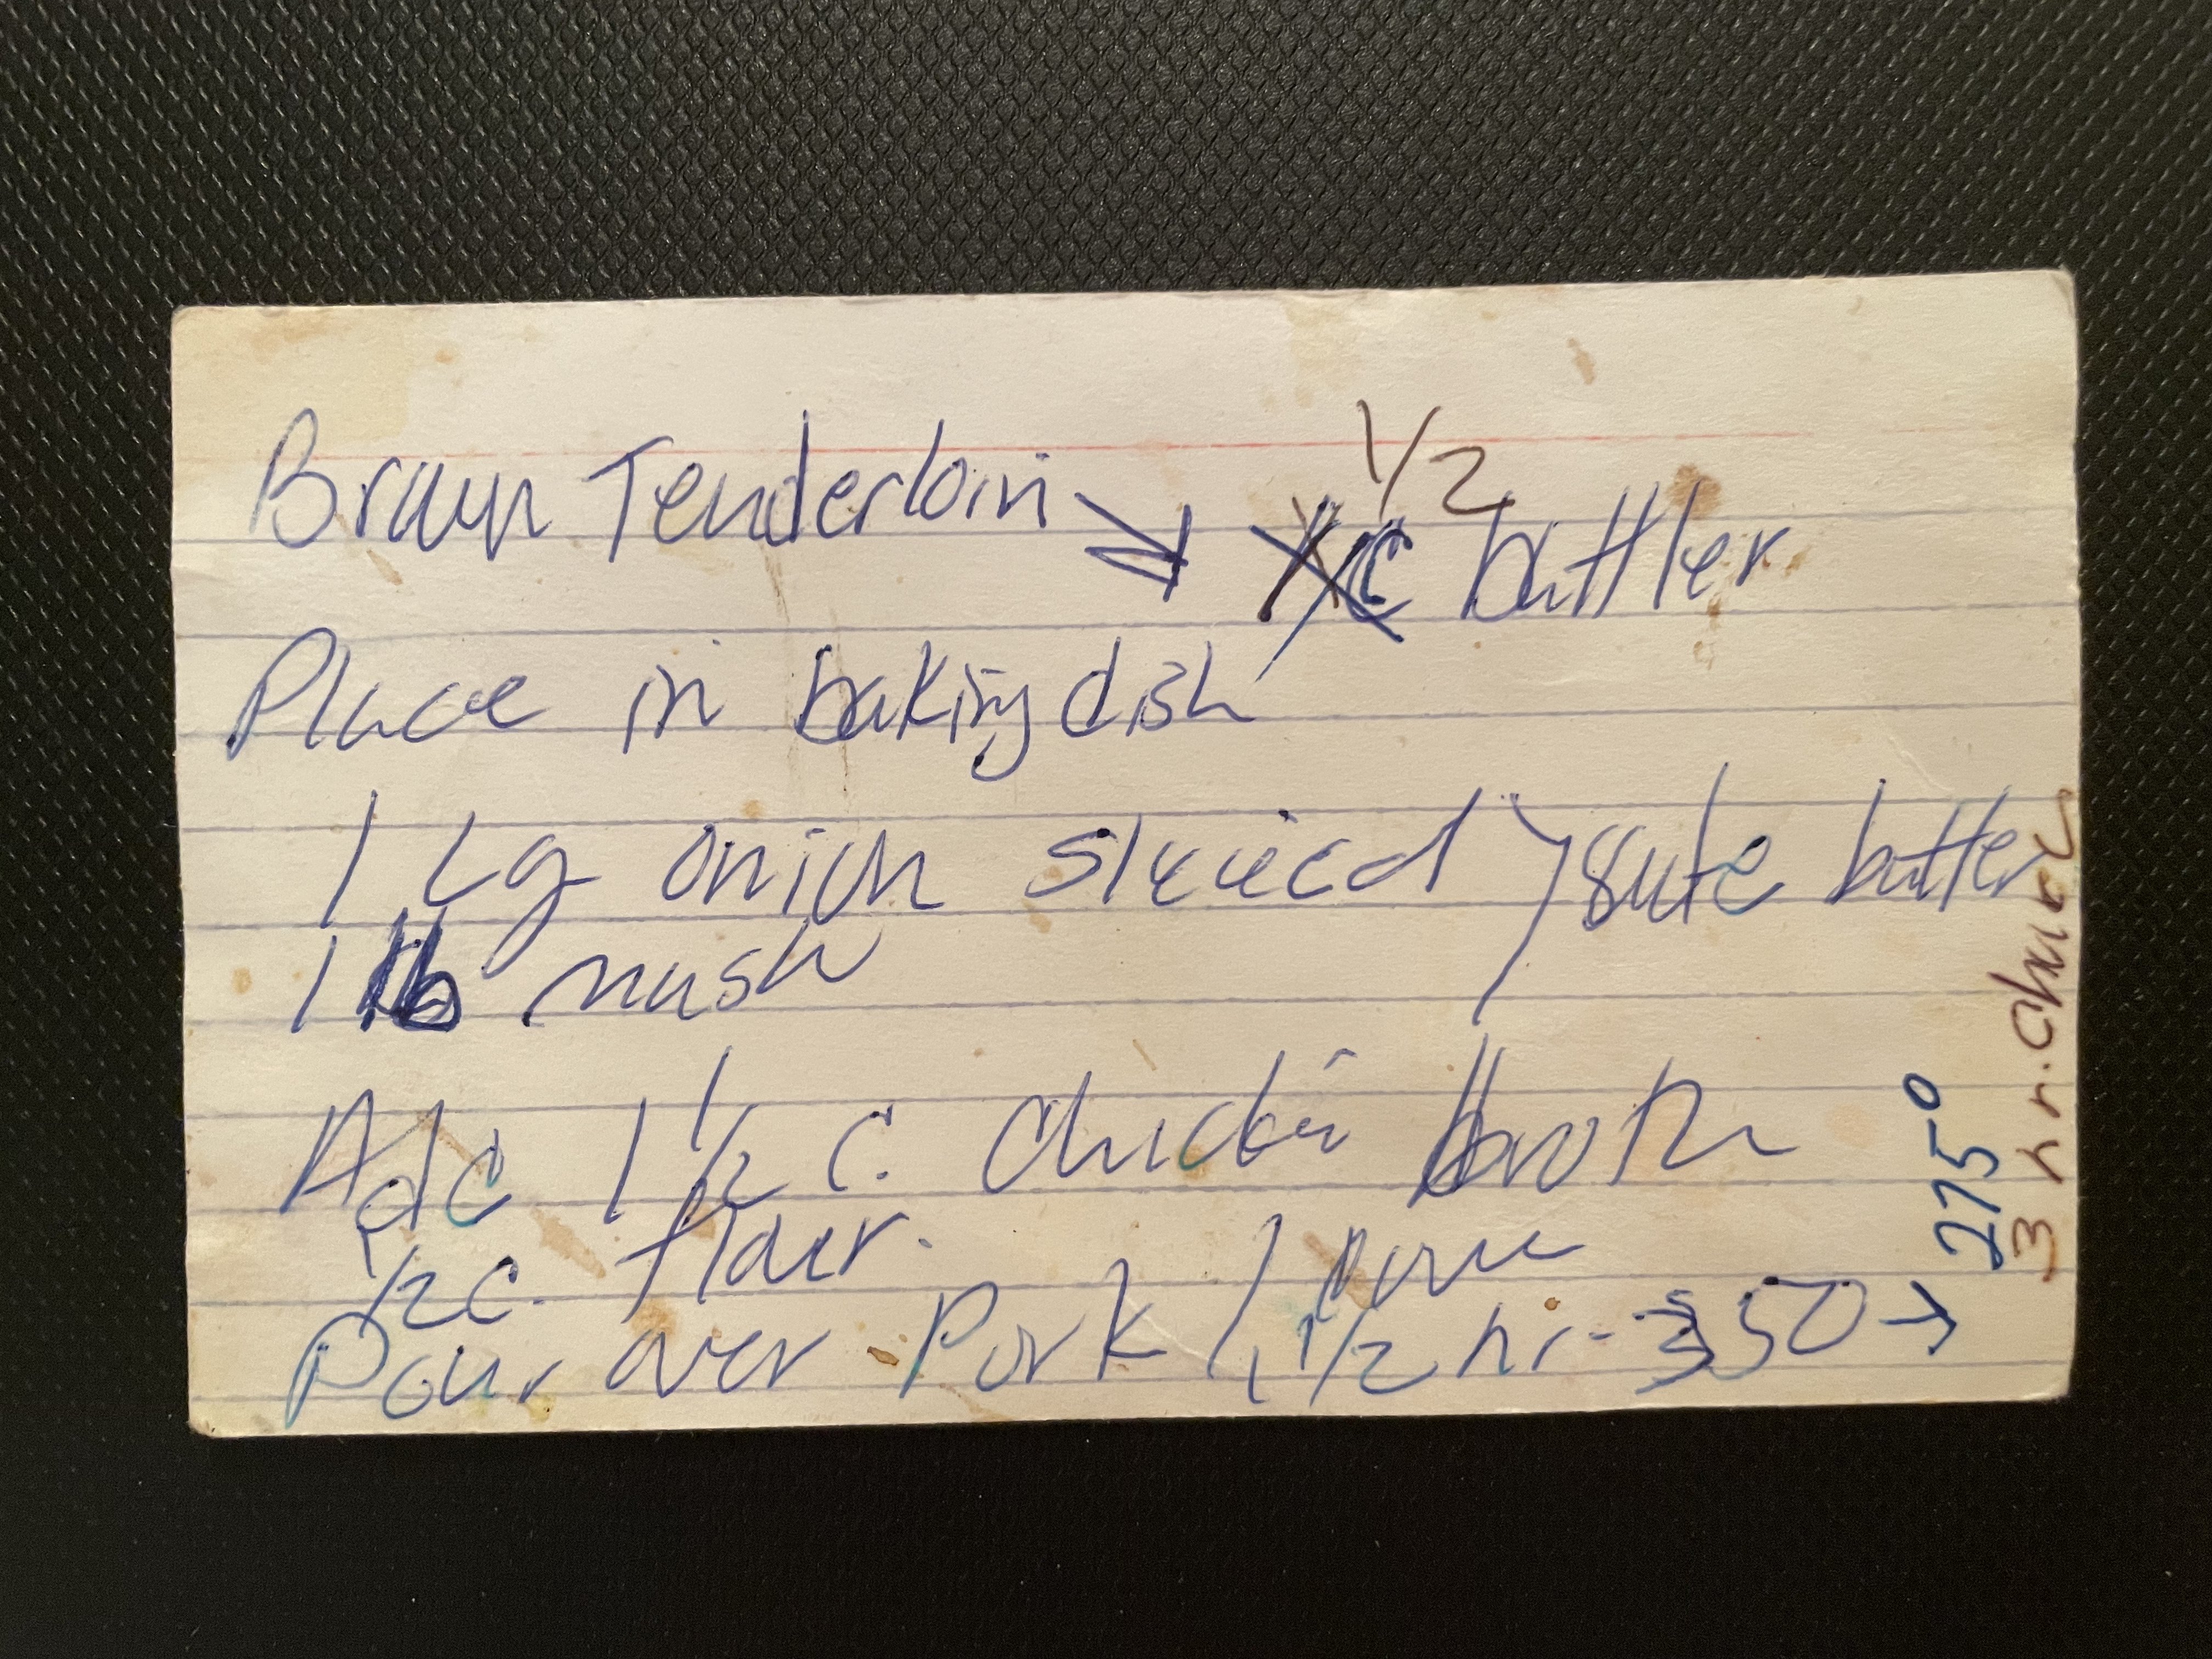 Brown Tenderloin → 1/2 c butter
Place in baking dish
1 Lg onion sliced } sute butter
1 lb mush
Add 1 1/2 c. chicken broth
1/2 c. flour.
Pour over Pork / 1 1/2 hr - 350 → 275°
3 hr. church